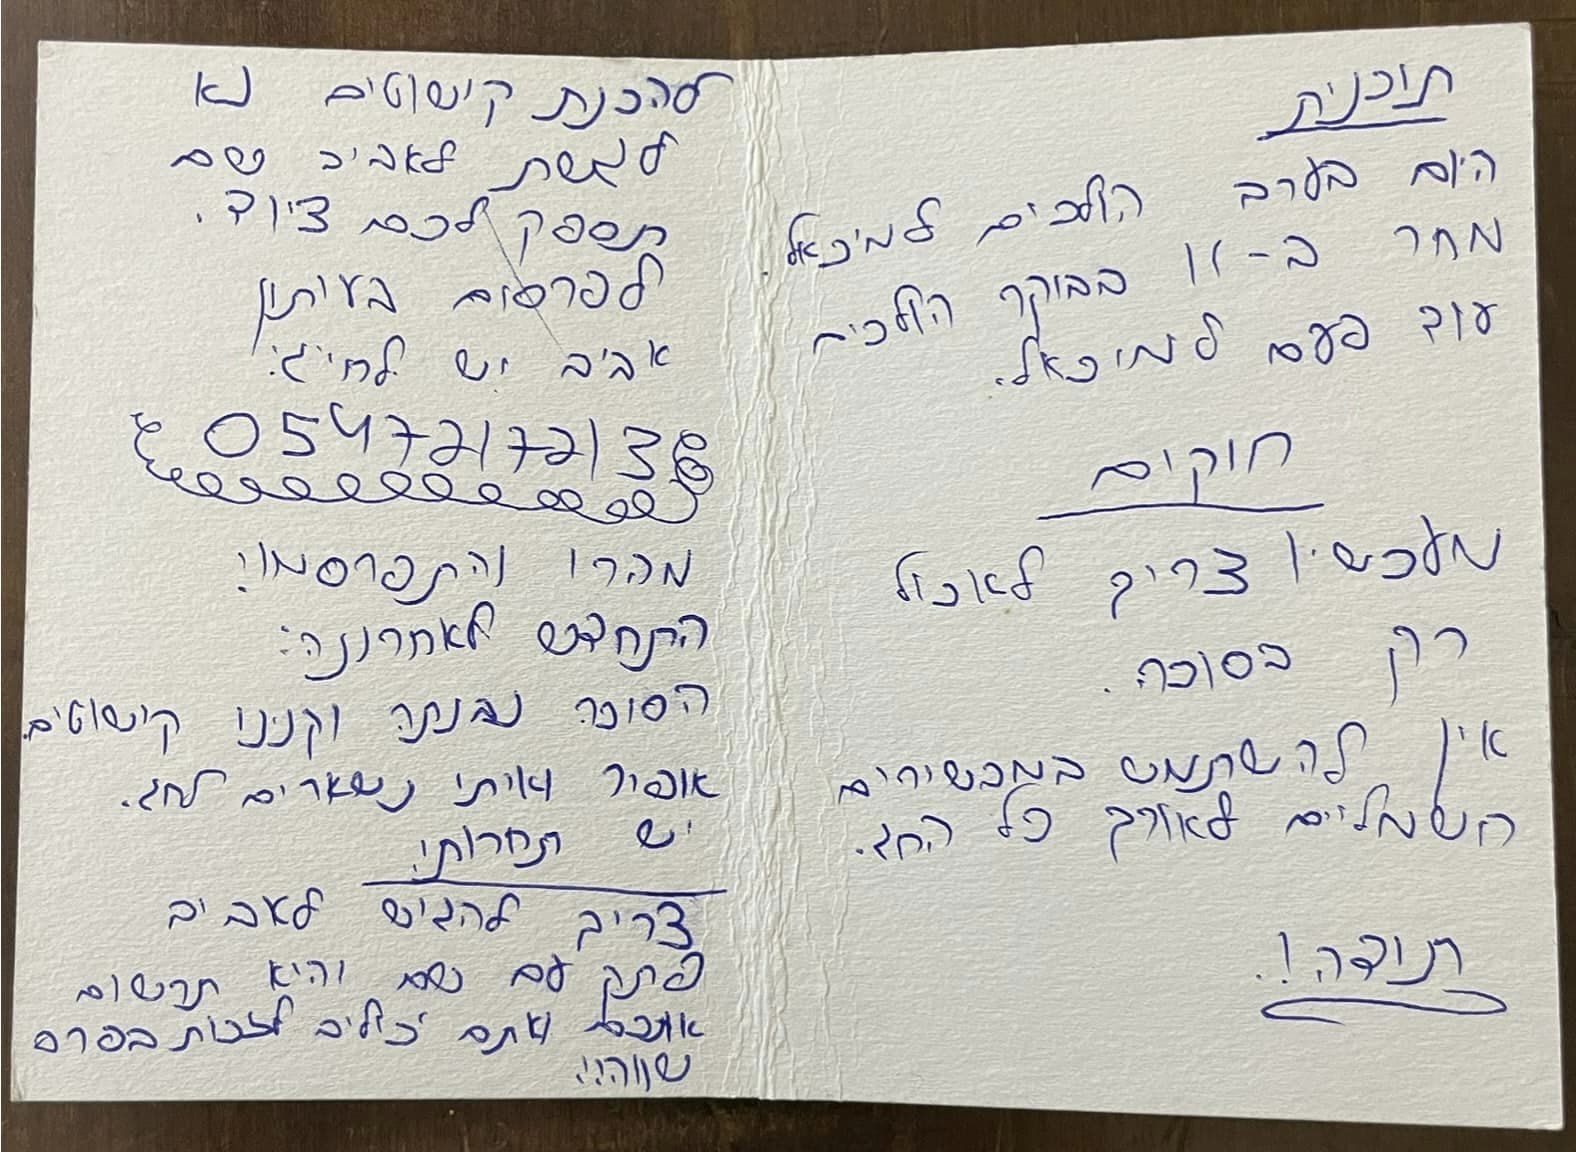 תוכנית
היום בערב הולכים למיכאל.
מחר ב-11 בבוקר הולכים
עוד פעם למיכאל.
חוקים
מעכשיו צריך לאכול
רק בסוכה.
אין להשתמש במכשירים
חשמליים לאורך כל החג.
תודה!
להכנת קישוטים נא
לגשת לאביב שם
תספק לכם ציוד.
לפרסום בעיתון
אביב יש לחייג:
0547217213
מהרו והתפרסמו!
התחדש לאחרונה:
הסוכה נבנתה וקנינו קישוטים.
אופיר ואיתי נשארים לחג.
יש תחרות!
צריך להגיש לאביב
פתק עם שם והיא תרשום
אתכם ואתם יכולים לזכות בפרס
שווה!!